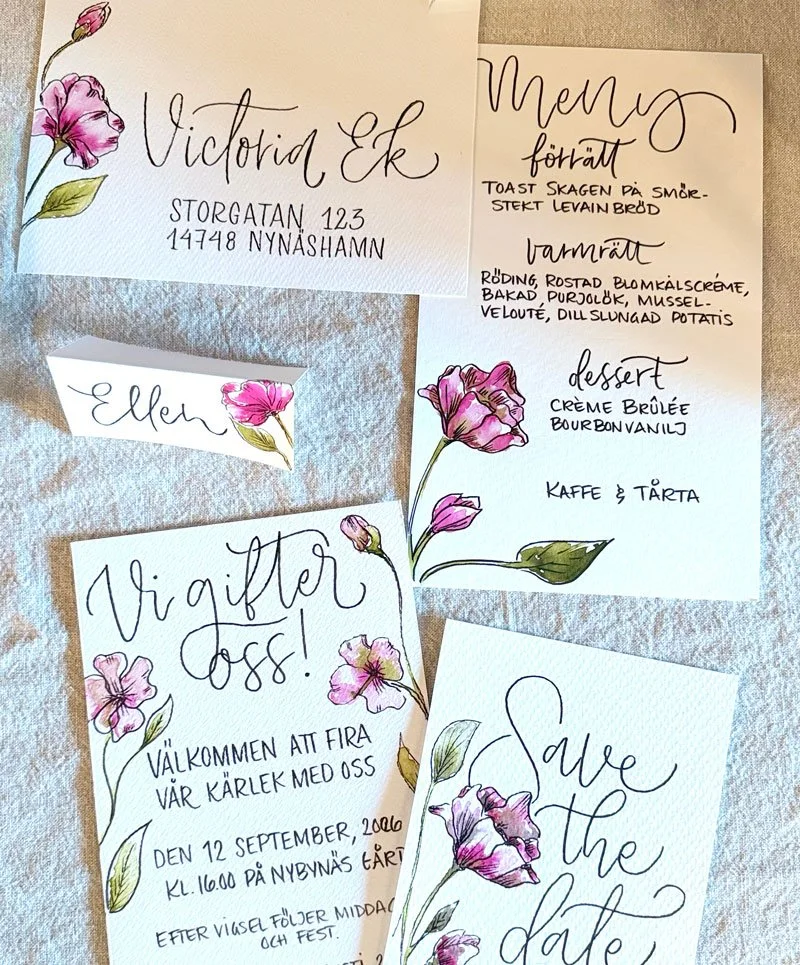 Victoria Ek
STORGATAN 123
14748 NYNÄSHAMN
Meny
förrätt
TOAST SKAGEN PÅ SMÖR-
STEKT LEVAINBRÖD
varmrätt
RÖDING, ROSTAD, BLOMKÅLSCRÉME,
BAKAD, PURJOLÖK, MUSSEL-
VELOUTÉ, DILLSLUNGAD POTATIS
dessert
CRÈME BRÛLÉE
BOURBONVANILJ
KAFFE & TÅRTA
Ellen
Vi gifter
oss!
VÄLKOMMEN ATT FIRA
VÅR KÄRLEK MED OSS
DEN 12 SEPTEMBER, 2026
KL. 16.00 PÅ NYBYNÄS
EFTER VIGSEL FÖLJER MIDDAG
OCH FEST.
Save
the
date